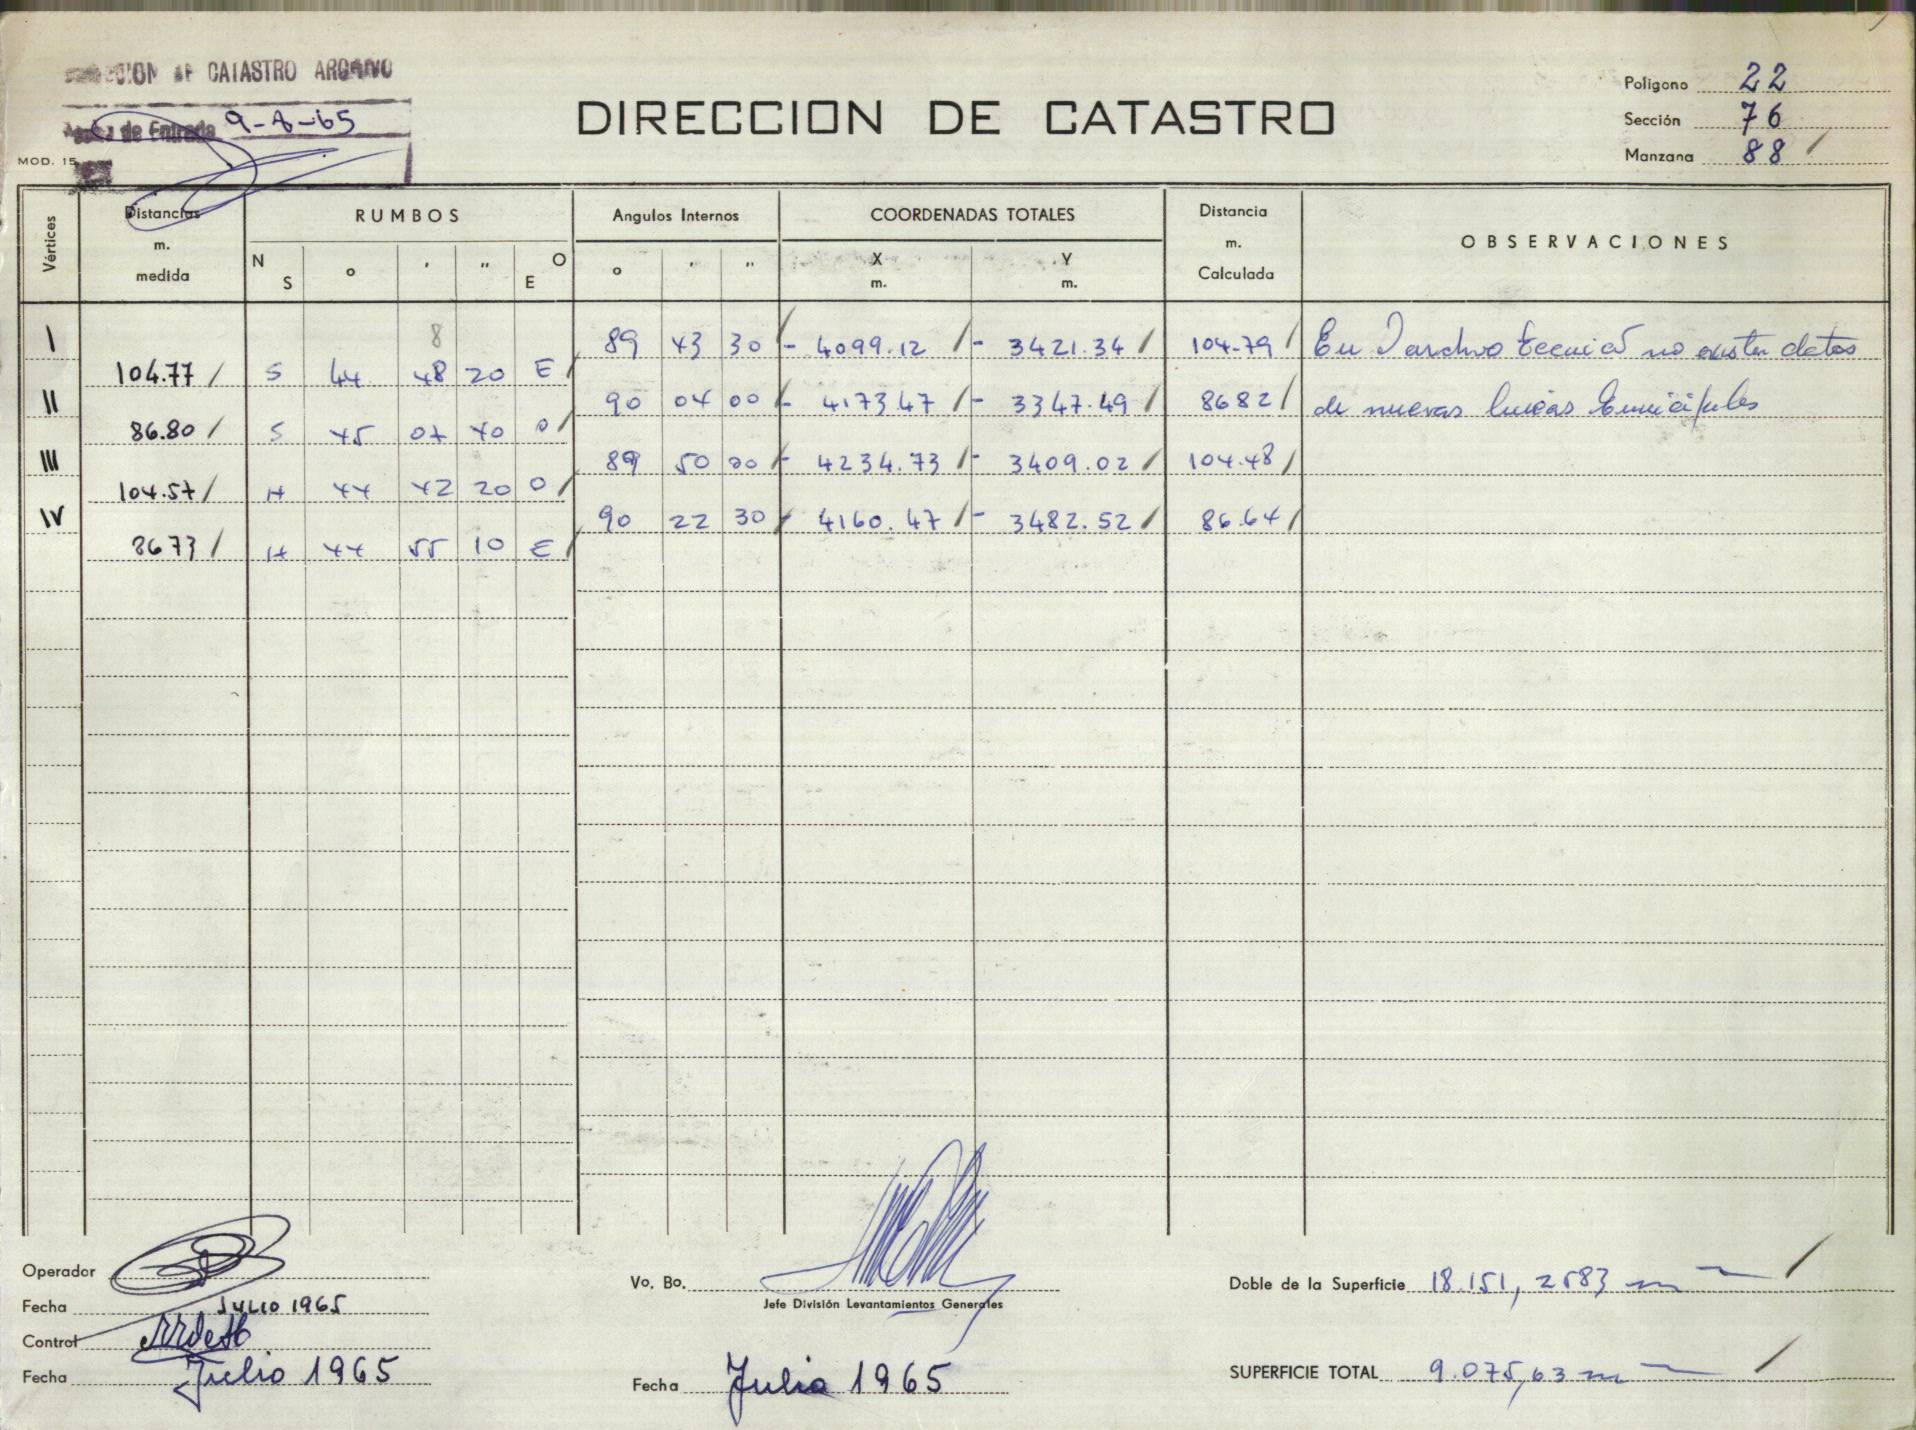 DE CATASTRO ARCHIVO
de Entrada 9-8-65
DIRECCION DE CATASTRO
Polígono 22
Sección 76
Manzana 88 /
MOD. 15
Vértices
Distancias m. medida
RUMBOS
N S ° ' '' O E
Angulos Internos
° ' ''
COORDENADAS TOTALES
X m. Y m.
Distancia m. Calculada
OBSERVACIONES
8
I 89 43 30 / - 4099.12 / - 3421.34 / 104.79 / En archivo tecnico no existen datos
104.77 / S 44 48 20 E /
II 90 04 00 / - 4173.47 / - 3347.49 / 86 82 / de nuevas lineas
86.80 / S 45 07 40 O /
III 89 50 00 / - 4234.73 / - 3409.02 / 104.48 /
104.57 / N 44 42 20 O /
IV 90 22 30 / - 4160.47 / - 3482.52 / 86.64 /
86 73 / N 44 55 10 E /
Operador
Fecha JULIO 1965
Control
Fecha Julio 1965
Vo. Bo.
Jefe División Levantamientos Generales
Fecha Julio 1965
Doble de la Superficie 18.151,2583 m² /
SUPERFICIE TOTAL 9.075,63 m² /